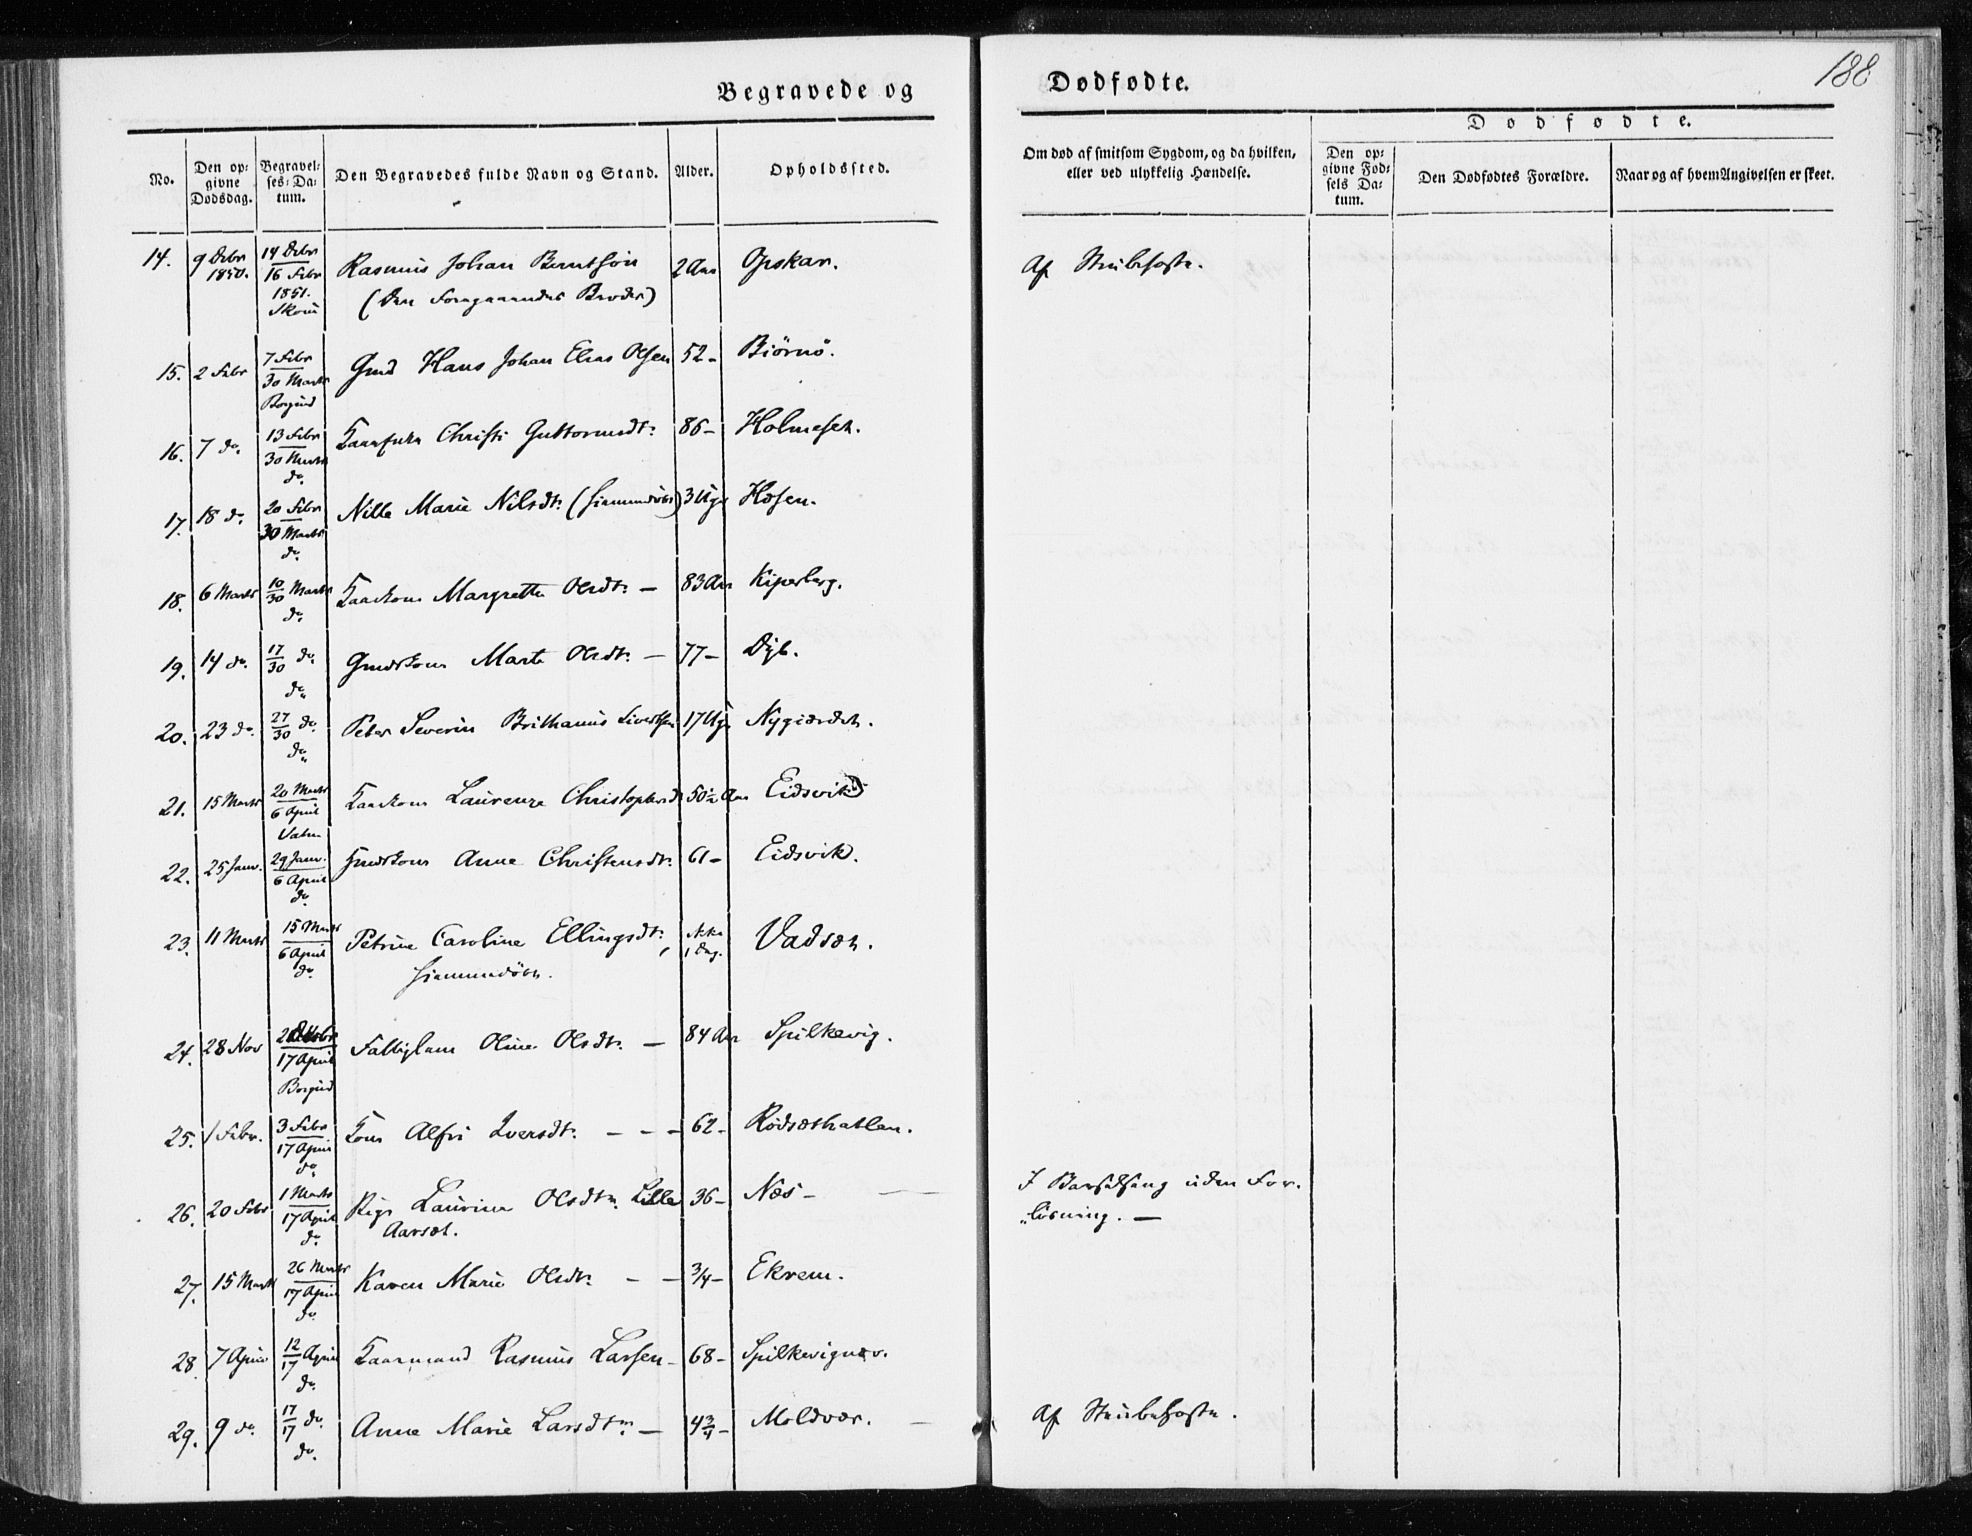 188
Begravede og Dødfødte.
No.
Den opgivne Dødsdag.
Begravelses-Datum.
Den Begravedes fulde Navn og Stand.
Alder.
Opholdssted.
Om død af smitsom Sygdom, og da hvilken, eller ved ulykkelig Hændelse.
Dødfødte.
Den opgivne Fødsels Datum.
Den Dødfødtes Forældre.
Naar og af hvem Angivelsen er skeet.
14. 9 Debr 1850. 14 Debr 16 Febr 1851. Rasmus Johan Berntsøn 2 Aar Opskar. Af Strubehoste.
(den Foregaaendes Broder)
15. 2 Febr 7 Febr 30 Marts Borgund Gmd Hans Johan Elias Olsen 52 - Biørnø.
16. 7 do. 13 Febr 30 Marts do. Christi Guttormsdtr: 86 - Holmeset.
17. 18 do. 20 Febr 30 Marts do. Nille Marie Nilsdtr: (hiemmedøbt) 3 Uger Hosen.
18. 6 Marts 10/30 Marts do. Kaarkone Margrethe Olsdtr: - 83 Aar Kiperberg.
19. 14 do. 17/30 do. do. Gmdskone Marte Olsdtr: - 77 - Dyb.
20. 23 do. 27/30 do. do. Peter Severin Sivertsen 17 Uger Nygiærdet.
21. 15 Marts 20 Marts 6 April Vatn Kaarkone Laurenze Christophersd 50½ Aar Eidsvik
22. 25 Janv. 29 Janv. 6 April do. Gmdskone Anne Christensdtr: 61 - Eidsvik.
23. 11 Marts 15 Marts 6 April do. Petrine Caroline Ellingsdtr:, ikke 1 Dag. Vadset.
hiemmedøbt.
24. 28 Nov 17 April Borgund Fattiglem Oline Olsdtr: - 84 Aar Spilkevig.
25. 1 Febr. 3 Febr 17 April do Kone Alfri Iversdtr: - - - 62 - Rødsæthatlen.
26. 20 Febr 1 Marts 17 April do. Pige Laurine Olsdtr: Lille 36 - Næs - I Barselseng uden For-
Aarset. løsning. -
27. 15 Marts 26 Marts 17 April do. Karen Marie Olsdtr: - - 3/4 - Ekrem.
28. 7 April 12/17 April do. Kaarmand Rasmus Larsen - 68 - Spilkevignær.
29. 9 do. 17/17 do. do. Anne Marie Larsdtr: - 4 3/4 - Moldvær. - Af Strubehoste.